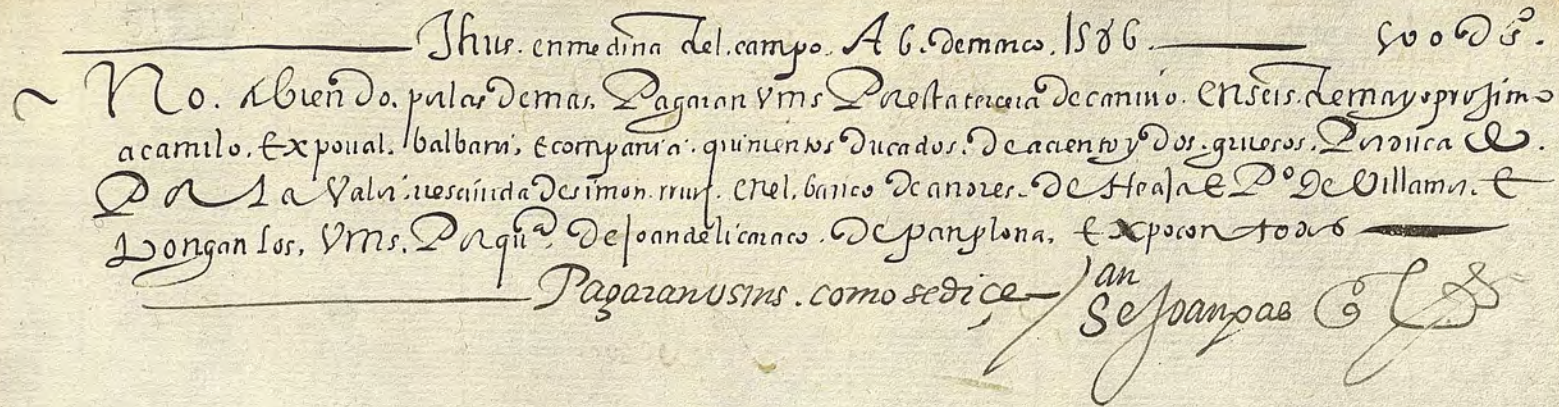 Jhus. en medina del. campo. A 6. de março. 1586. 500 Ds.
No. Abiendo. por las demas. Pagaran Vms Por esta tercera de canvio. En seis. de mayo projimo
a camilo. E xpoval. balbani, E compania. quinientos Ducados. De a ciento y dos. gruesos. Por duca do.
Por La Valor. resciuida de simon. rruiz. en el. banco de a nores. De Heaja E Po De Villamor. E
Pongan Los, Vms. Por qta De Joan de licaraco. De panplona, E xpo con todos
Pagaran vsms. como se diçe